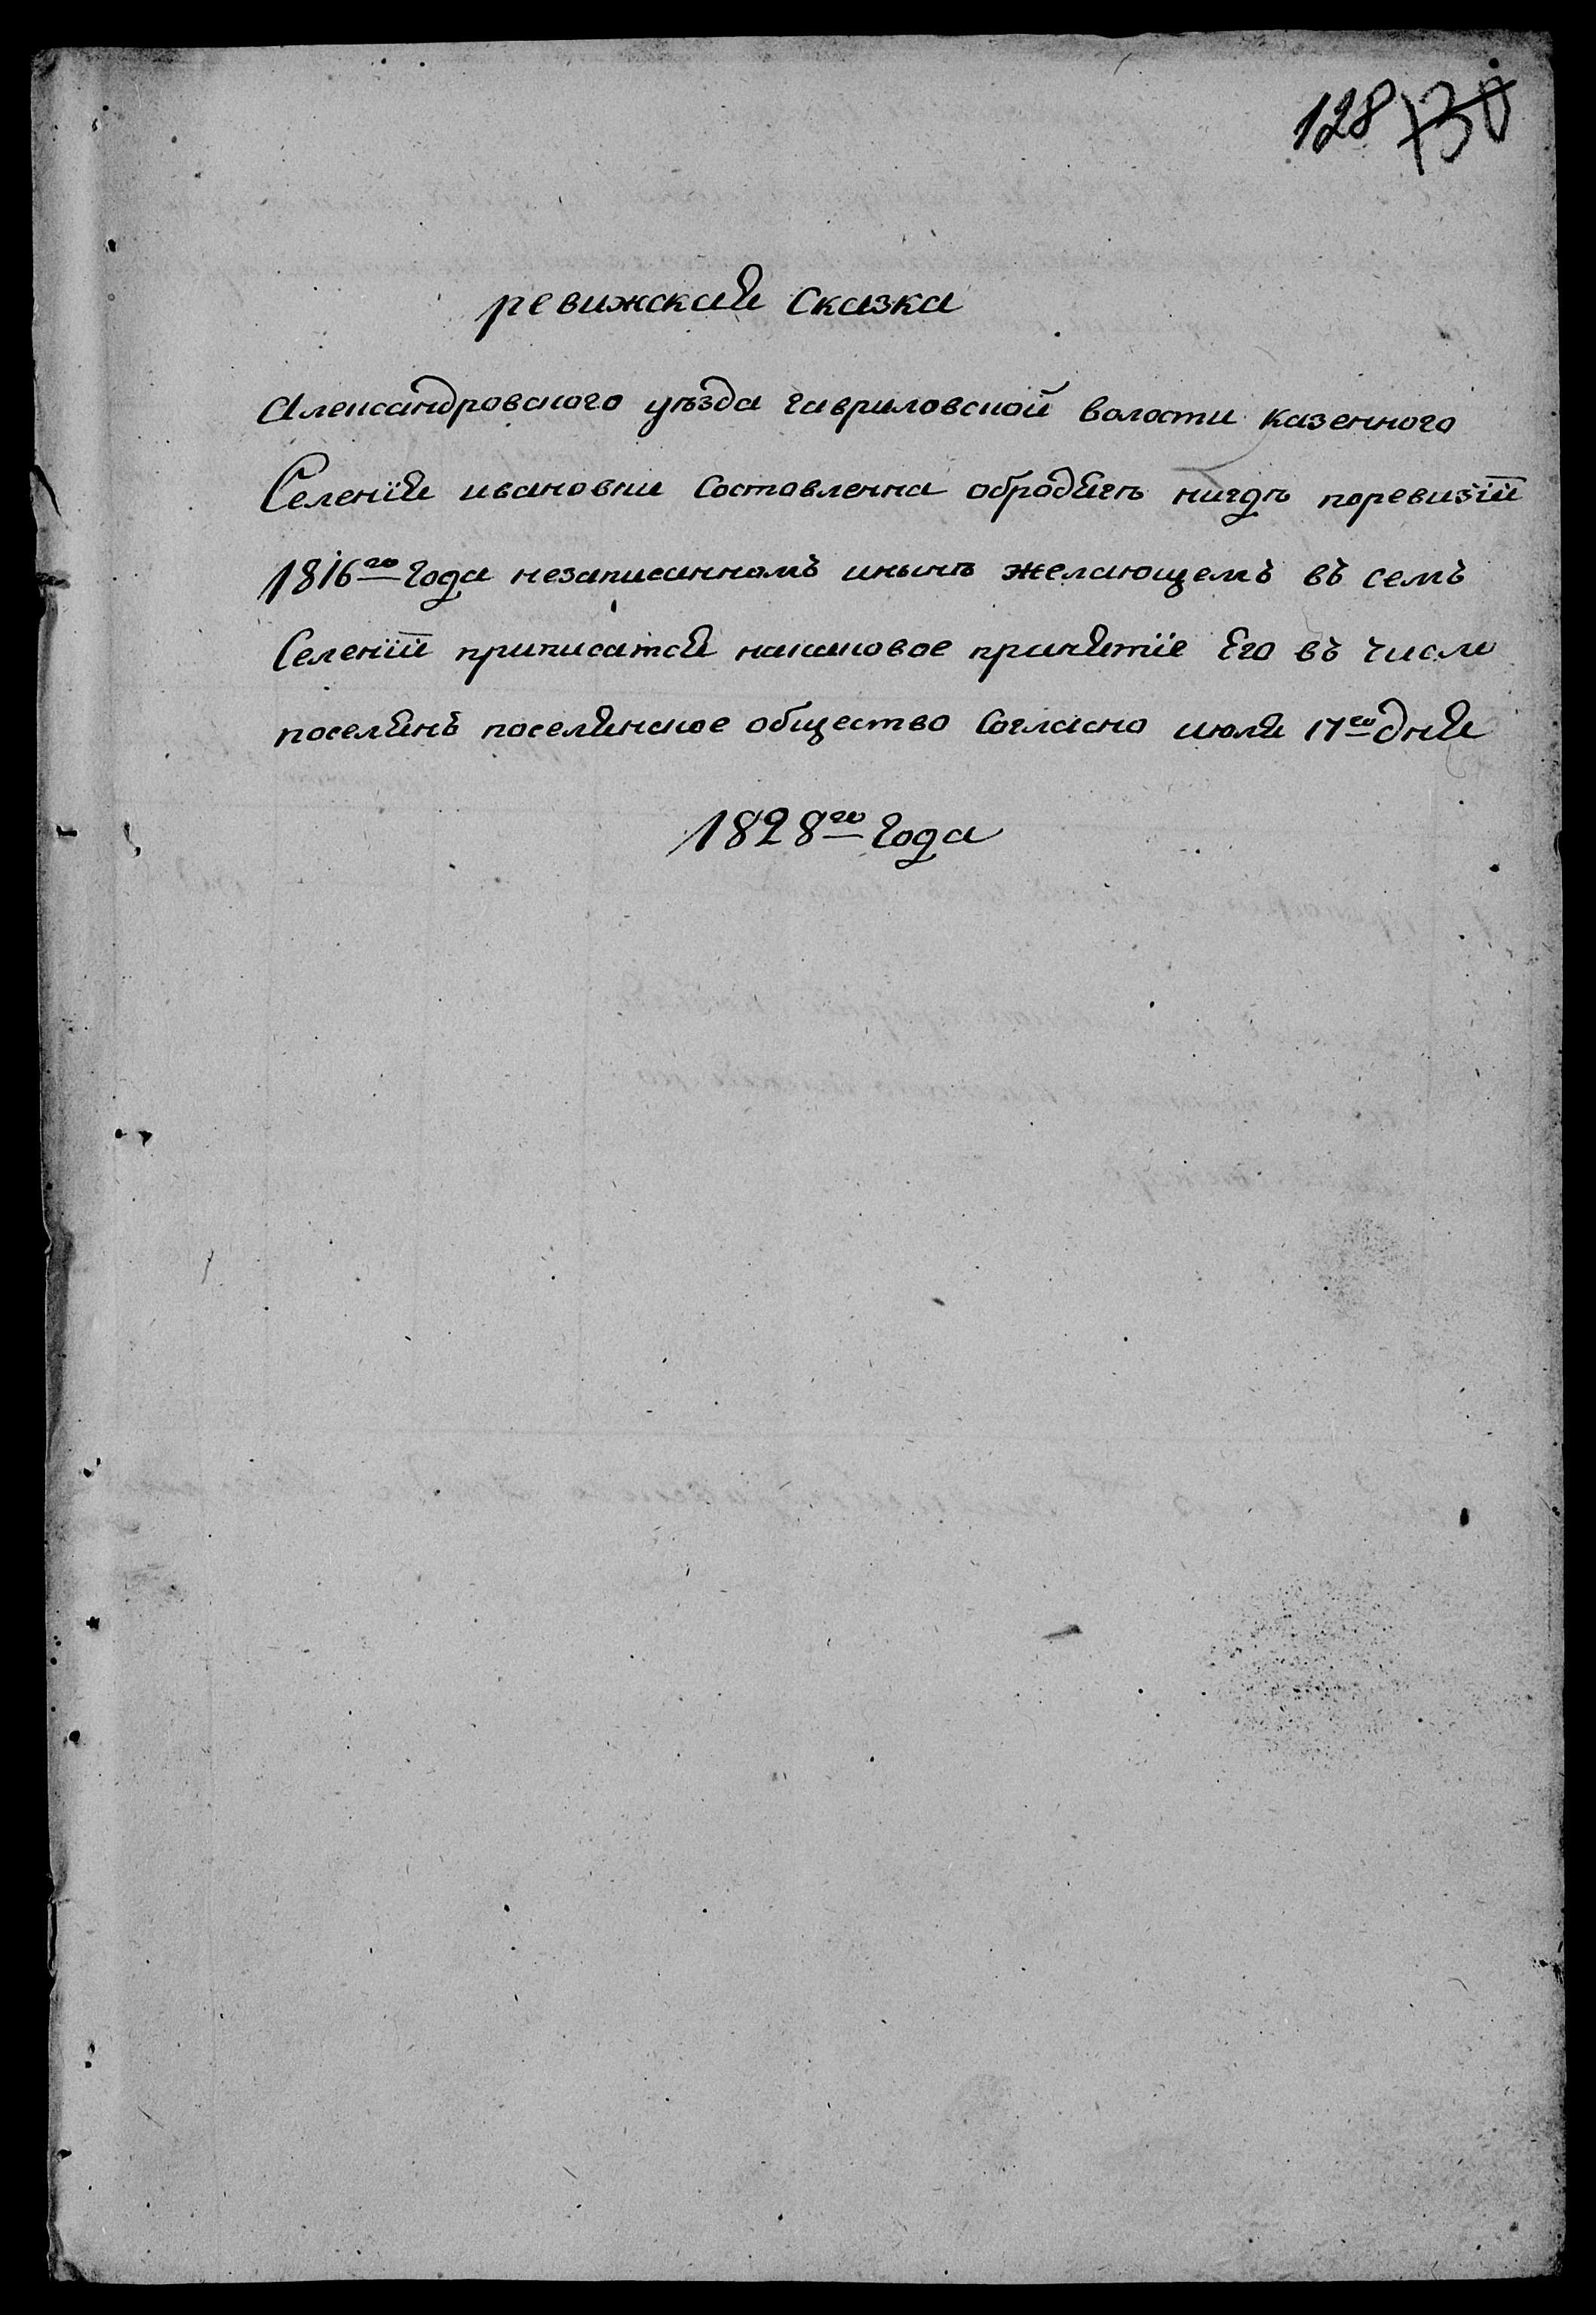 128 130
ревижская сказка
Александровского уѣзда гавриловской волости казенного
Селенїя ивановки Составленна обродягѣ нигдѣ поревизїи
1816го Года незаписанномъ инынѣ желающемъ въ семъ
Селенїи приписатся накаковое принятїе Его въ число
поселянъ поселянское общество Согласно июля 17го дня
1828го Года